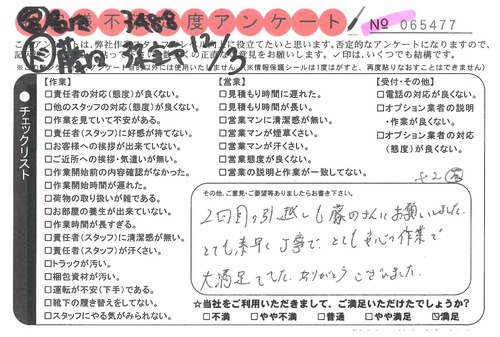 満 不 満 足 度 アンケート
No 065477
12/3
チェックリスト
【作業】
□責任者の対応(態度)が良くない。
□他のスタッフの対応(態度)が良くない。
□作業を見ていて不安がある。
□責任者(スタッフ)に好感が持てない。
□お客様への挨拶が出来ていない。
□ご近所への挨拶・気遣いが無い。
□作業開始前の内容確認がなかった。
□作業開始時間が遅れた。
□荷物の取り扱いが雑である。
□お部屋の養生が出来ていない。
□作業時間が長すぎる。
□責任者(スタッフ)に清潔感が無い。
□責任者(スタッフ)が汗くさい。
□トラックが汚い。
□梱包資材が汚い。
□運転が不安(下手)である。
□靴下の履き替えをしてない。
□スタッフにやる気がみられない。
【営業】
□見積もり時間に遅れた。
□見積もり時間が長い。
□営業マンに清潔感が無い。
□営業マンが煙草くさい。
□営業マンが汗くさい。
□営業態度が良くない。
□営業の説明と作業が一致してない。
【受付・その他】
□電話の対応が良くない。
□オプション業者の説明
・作業が良くない。
□オプション業者の対応
(態度)が良くない。
その他、ご意見・ご要望等ありましたらお書き下さい。
2回目の引越しも藤田さんにお願いしました。
とても素早く丁寧で、とても安心の作業で
大満足でした。ありがとうございました。
☆当社をご利用いただきまして、ご満足いただけたでしょうか?
□不満 □やや不満 □普通 □やや満足 ☑満足